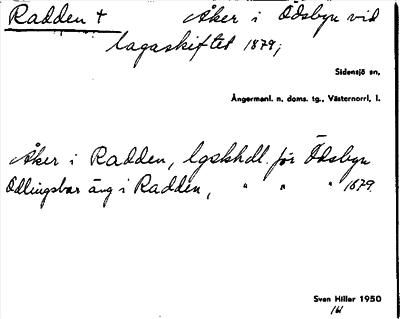 Radden + Åker i Ödsbyn vid
lagaskiftet 1879;
Sidensjö sn,
Ångermanl. n. doms. tg., Västernorrl. l.
Åker i Radden, lgskhdl. för Ödsbyn
Odlingsbar äng i Radden, " " " 1879.
Sven Hiller 1950
161